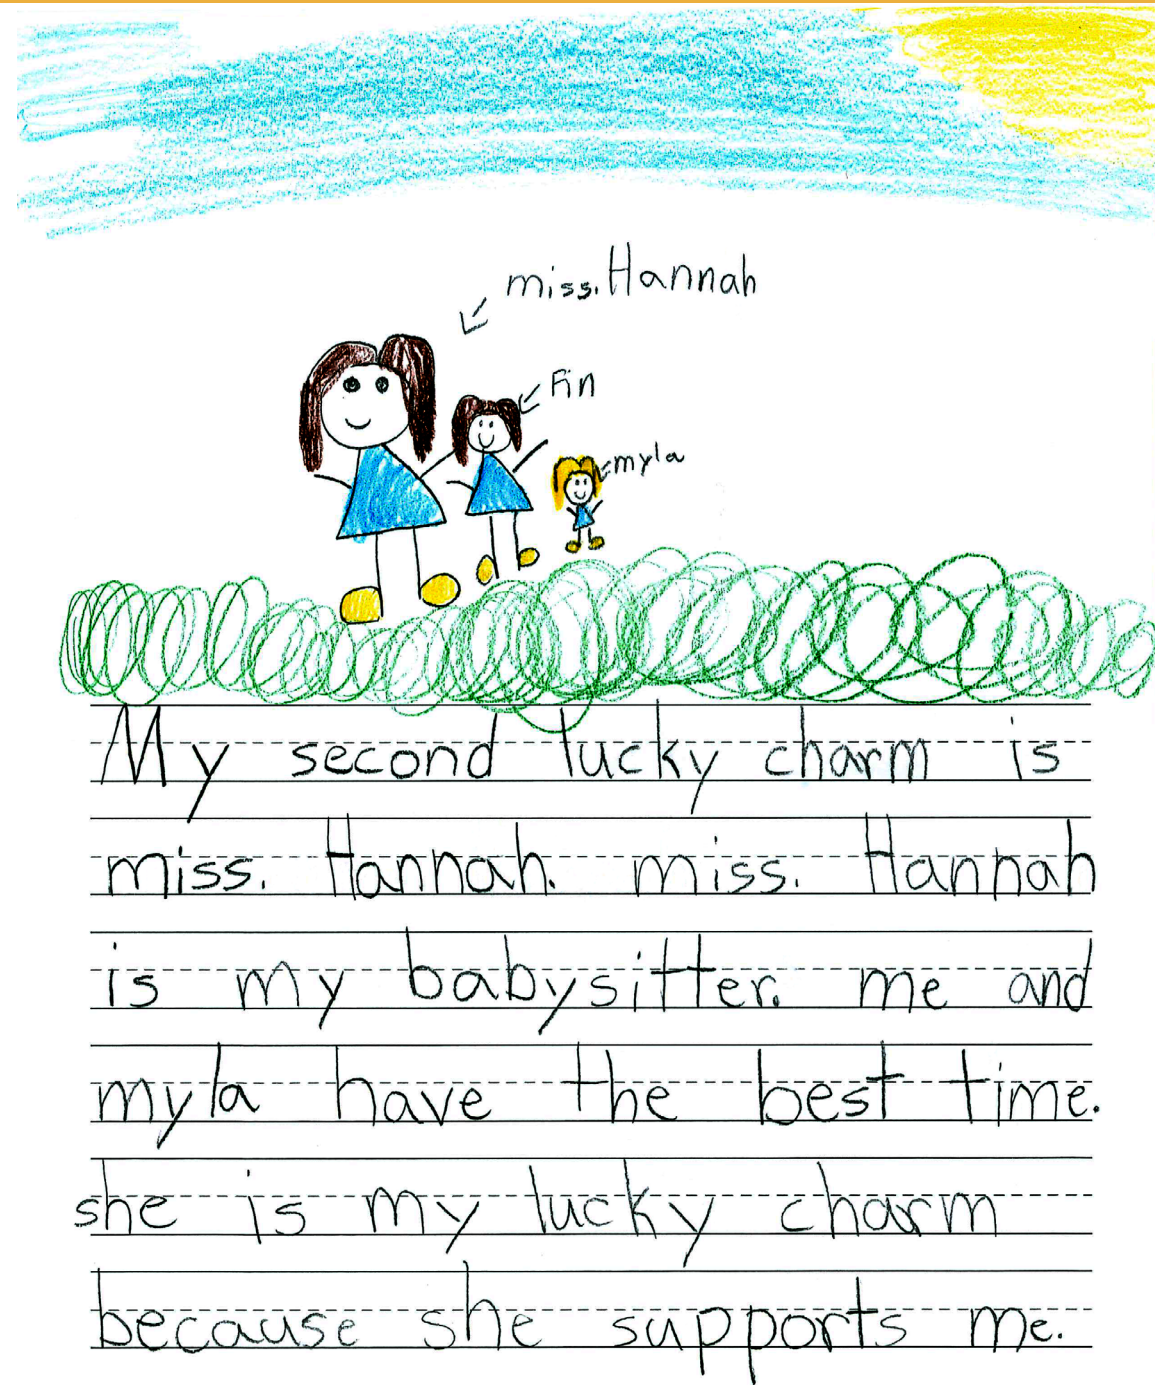 miss. Hannah
Fin
myla
My second lucky charm is
miss. Hannah. miss. Hannah
is my babysitter. me and
myla have the best time.
she is my lucky charm
because she supports me.